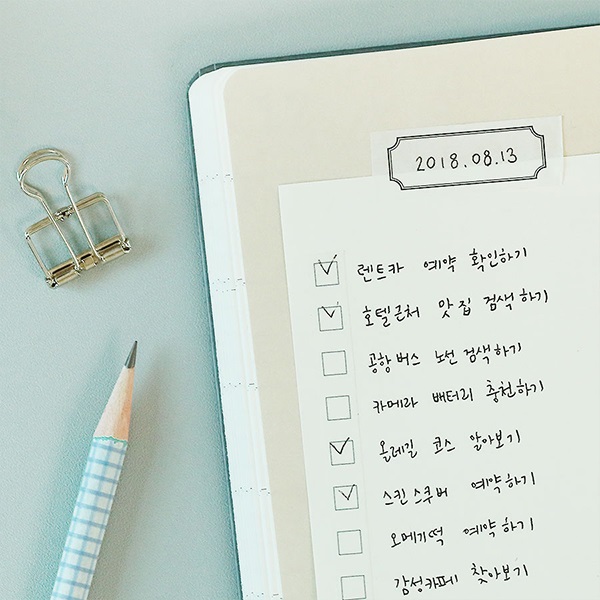 2018.08.13
렌트카 예약 확인하기
호텔근처 맛집 검색하기
공항버스 노선검색하기
카메라 배터리 충전하기
올레길 코스 알아보기
스킨스쿠버 예약하기
오메기떡 예약하기
감성카페 찾아보기